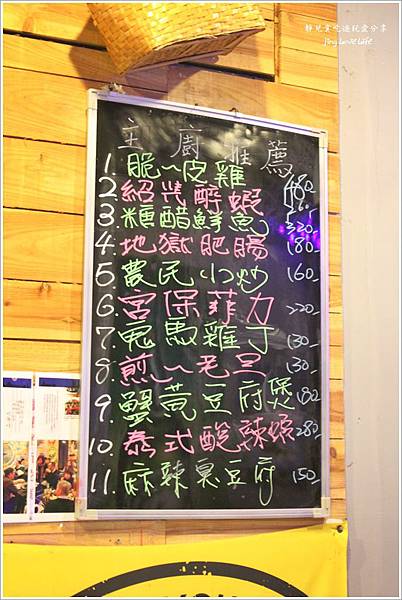 靜兒貪吃遊玩愛分享
Jing Love Life
主廚推薦
1. 脆皮雞 480
2. 紹興醉蝦 160
3. 糖醋鮮魚 320
4. 地獄肥腸 180
5. 農民小炒 160
6. 宮保菲力 220
7. 宮馬雞丁 130
8. 煎老豆 130
9. 蟹黃豆府煲 180
10. 泰式酸辣蝦 280
11. 麻辣臭豆府 150